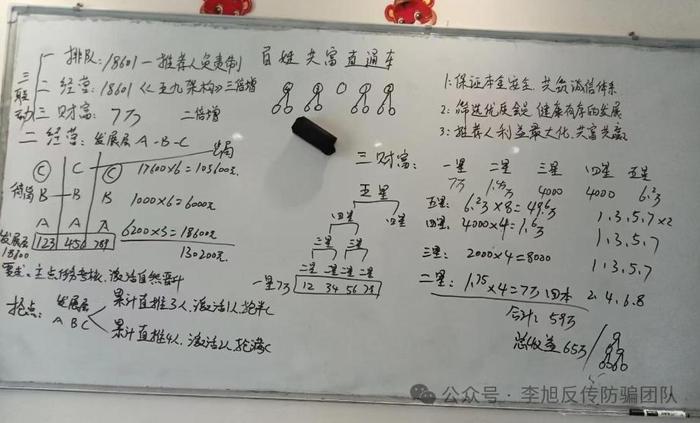 百姓共富直通车
三联动
一 排队:18601—推荐人负责制
二 经营:18601《五九架构》三倍增
三 财富:7万 二倍增
1:保证本金安全、共筑诚信体系
2:筛选优质会员 健康有序的发展
3:推荐人利益最大化,共富共赢
二 经营:发展层 A-B-C 出局
C C C 17600×6=105600元
B B B 1000×6=6000元
A A A 6200×3=18600元
发展层 123 456 789 130200元
18600
要求:主点任务考核,激活自然晋升
抢点:发展层 ABC
累计直推3人,激活1人,抢半C
累计直推4人,激活2人,抢满C
三 财富:
一星 二星 三星 四星 五星
7万 1.75万 4000 4000 6.2万
五星
四星 四星
三星 三星
二星 二星 二星 二星
一星7万 12 34 56 78
五星:6.2万×8=49.6万 1.3.5.7×2
四星:4000×4=1.6万 1.3.5.7
三星:2000×4=8000 1.3.5.7
二星:1.75×4=7万 回本 2.4.6.8
合计:59万
总收益65万
公众号·李旭反传防骗团队